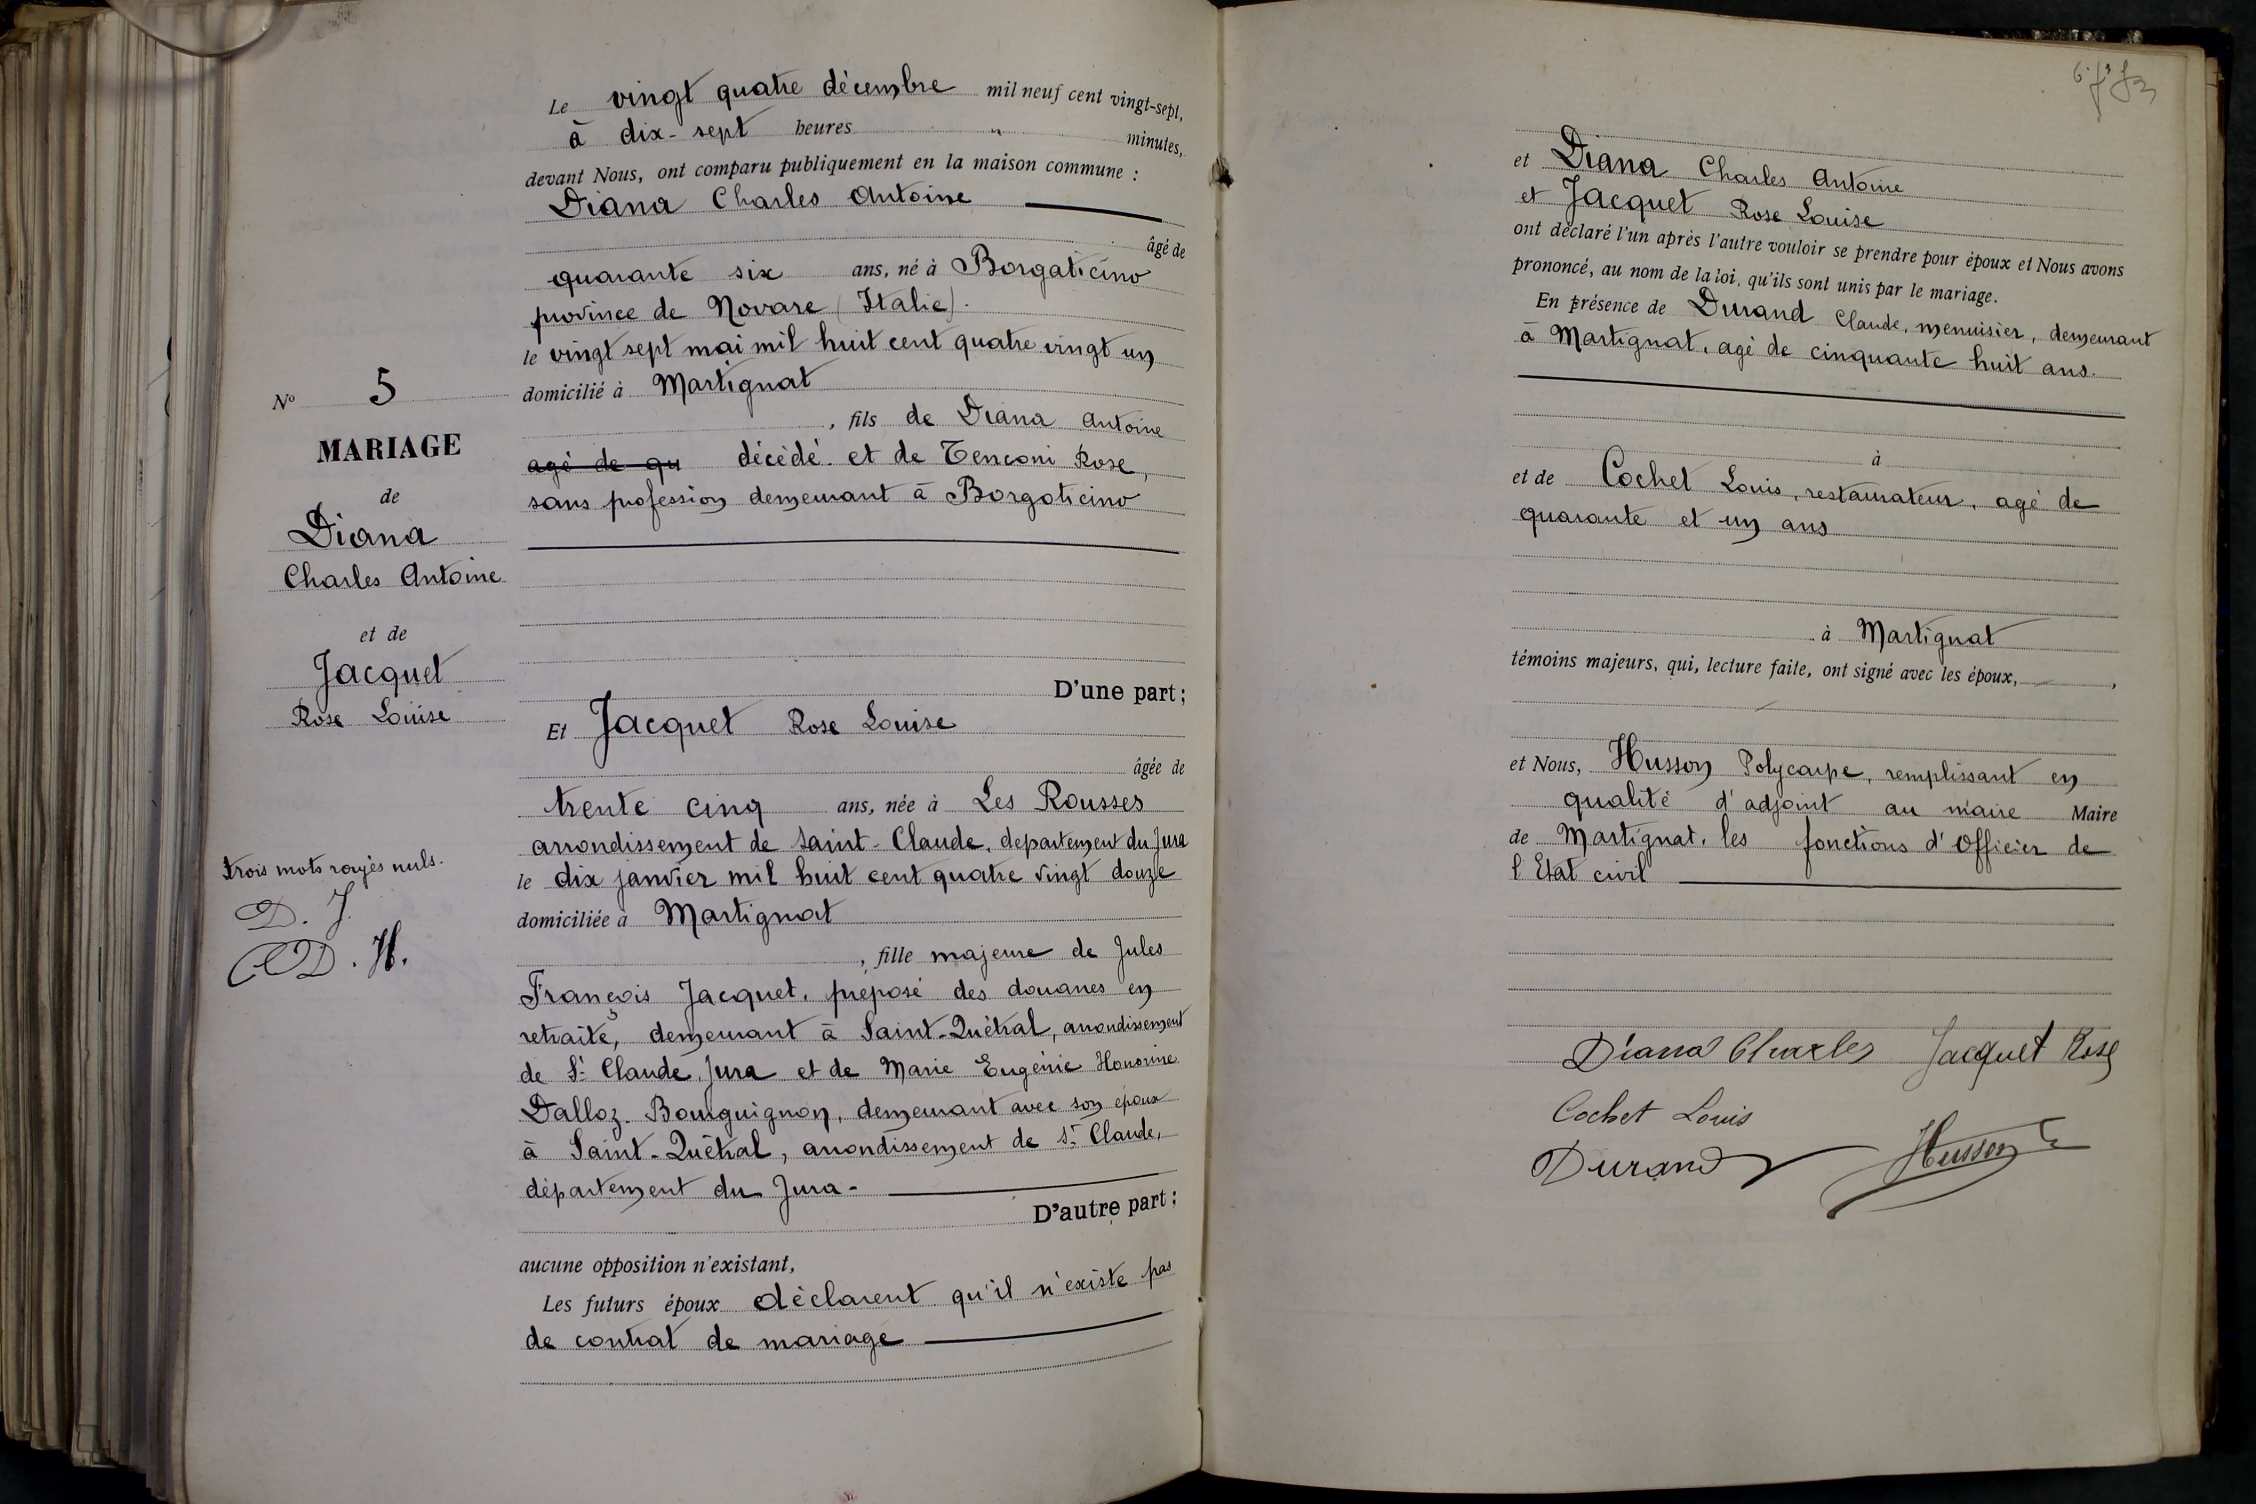 Le vingt quatre décembre mil neuf cent vingt-sept,
à dix-sept heures " minutes,
devant Nous, ont comparu publiquement en la maison commune :
Diana Charles Antoine
âgé de
quarante six ans, né à Borgaticino
province de Novare (Italie).
le vingt sept mai mil huit cent quatre vingt un
domicilié à Martignat
, fils de Diana Antoine
agé de qu décédé. et de Tenconi Rose,
sans profession demeurant à Borgoticino
No 5
MARIAGE
de
Diana
Charles Antoine
et de
Jacquet
Rose Louise
D'une part ;
Et Jacquet Rose Louise
âgée de
trente cinq ans, née à Les Rousses
arrondissement de Saint-Claude, departement du Jura
le dix janvier mil huit cent quatre vingt douze
domiciliée à Martignat
, fille majeure de Jules
François Jacquet, préposé des douanes en
retraite, demeurant à Saint-Quétral, arrondissement
de St Claude, Jura et de Marie Eugénie Honorine
Dalloz-Bourguignon, demeurant avec son époux
à Saint-Quétral, arrondissement de St Claude,
département du Jura-
D'autre part :
trois mots rayés nuls.
D. J.
C D. H.
aucune opposition n'existant,
Les futurs époux déclarent qu'il n'existe pas
de contrat de mariage
et Diana Charles Antoine
et Jacquet Rose Louise
ont déclaré l'un après l'autre vouloir se prendre pour époux et Nous avons
prononcé, au nom de la loi, qu'ils sont unis par le mariage.
En présence de Durand Claude, menuisier, demeurant
à Martignat, agé de cinquante huit ans.
à
et de Cochet Louis, restaurateur, agé de
quarante et un ans
à Martignat
témoins majeurs, qui, lecture faite, ont signé avec les époux, ,
et Nous, Husson Polycarpe, remplissant en
qualité d'adjoint au maire Maire
de Martignat, les fonctions d'Officier de
l'Etat civil
Diana Charles Jacquet Rose
Cochet Louis
Durand Husson